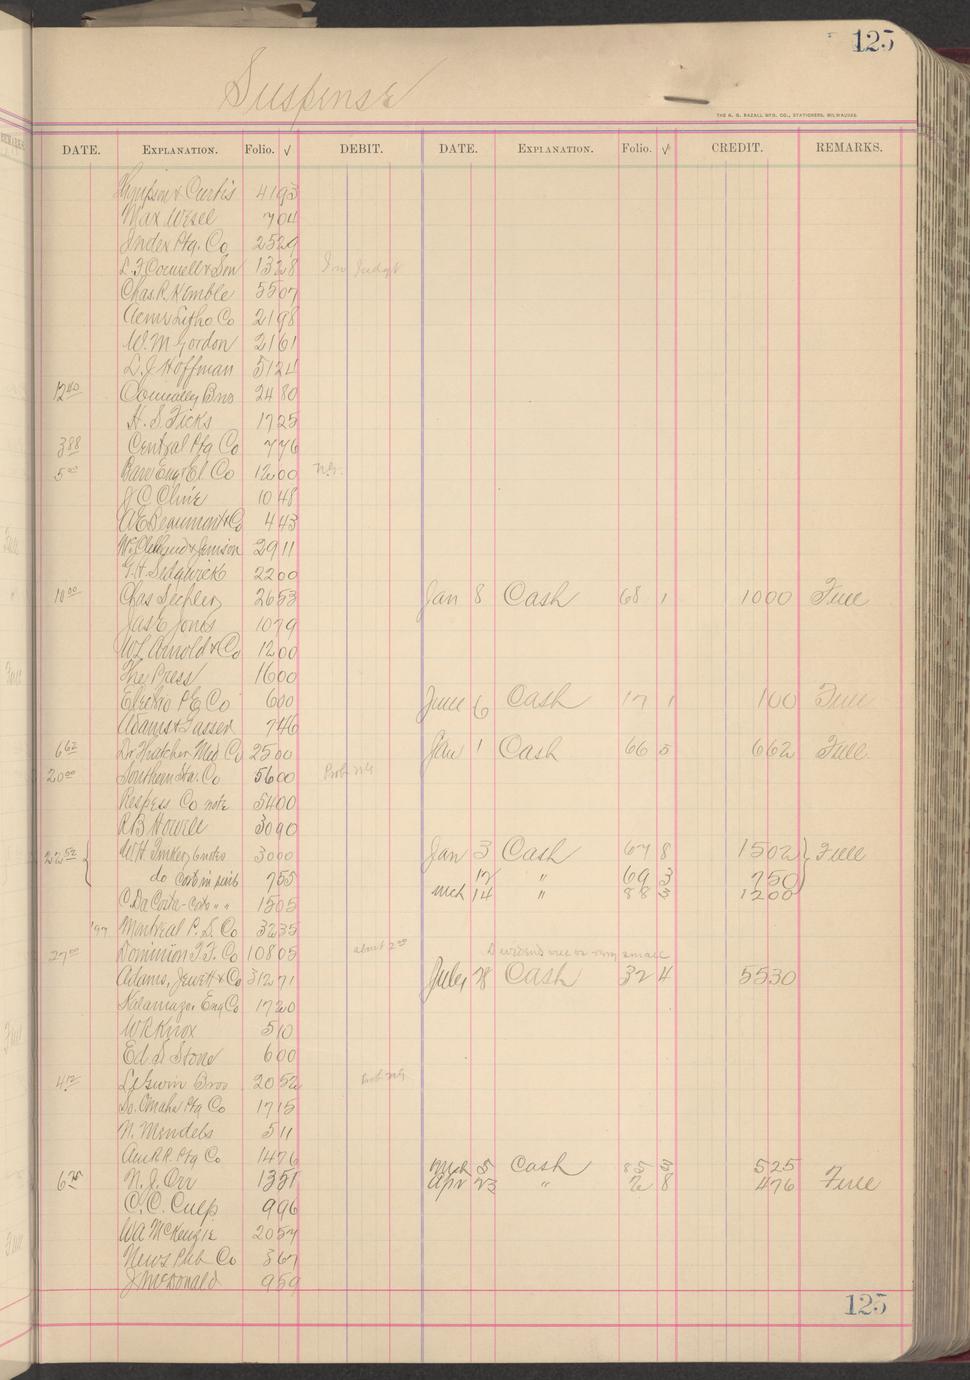 125
Suspense
THE A. G. BAZALL MFG. CO., STATIONERS, MILWAUKEE.
DATE. EXPLANATION. Folio. √ DEBIT. DATE. EXPLANATION. Folio. √ CREDIT. REMARKS.
Simpson & Curtis 4193
Max Wesel 704
Index Ptg. Co 2529
& Son 1328 In Judgt
Chas. R. Kemble 5507
Acme Litho Co 2198
W. M Gordon 2161
L. J Hoffman 5124
12 40 Connelley Bros 2480
H. S. Ficks 1725
3 88 Central Ptg Co 776
5 00 Barr Eng & El. Co 1200 N.G.
J C Cline 1048
A E Beaumont & Co 443
& Jamison 2911
G. H. Sedgwick 2200
10 00 Chas Sechler 2653 Jan 8 Cash 68 1 1000 Full
Jas E Jones 1079
W L Arnold & Co 1200
The Press 1600
Electro P E Co 600 June 6 Cash 17 1 100 Full
Adams & Gasser 746
6 62 Dr. Thatcher Med Co 2500 Jan 1 Cash 66 5 662 Full
20 00 Southern Sta. Co 5600 Prob NG
Respess Co note 5400
R B Howell 3090
22 52 { W H. Tinker, 6 notes 3000 Jan 3 Cash 67 8 1502 } Full
do 755 12 " 69 3 750
C. Da Costa " " 1505 Mch 14 " 88 3 1200
'97 Montreal P. S. Co 3235
27 00 Dominion T. F. Co 10805 about 2 00 Dividend small
Adams, Jewett & Co 31271 July 28 Cash 32 4 5530
Kalamazoo Eng Co 1720
W R Knox 510
Ed S Stone 600
4 12 LeGwin Bros 2052 Prob NG
So. Omaha Ptg Co 1715
N. Mendels 511
Am R.R. Ptg Co 1476
Mch 5 Cash 85 3 525
6 25 N. J. Orr 1351 Apr 23 " 2 8 476 Full
C. C. Culp 996
W A McKenzie 2057
News Pub Co 367
J McDonald 959
125